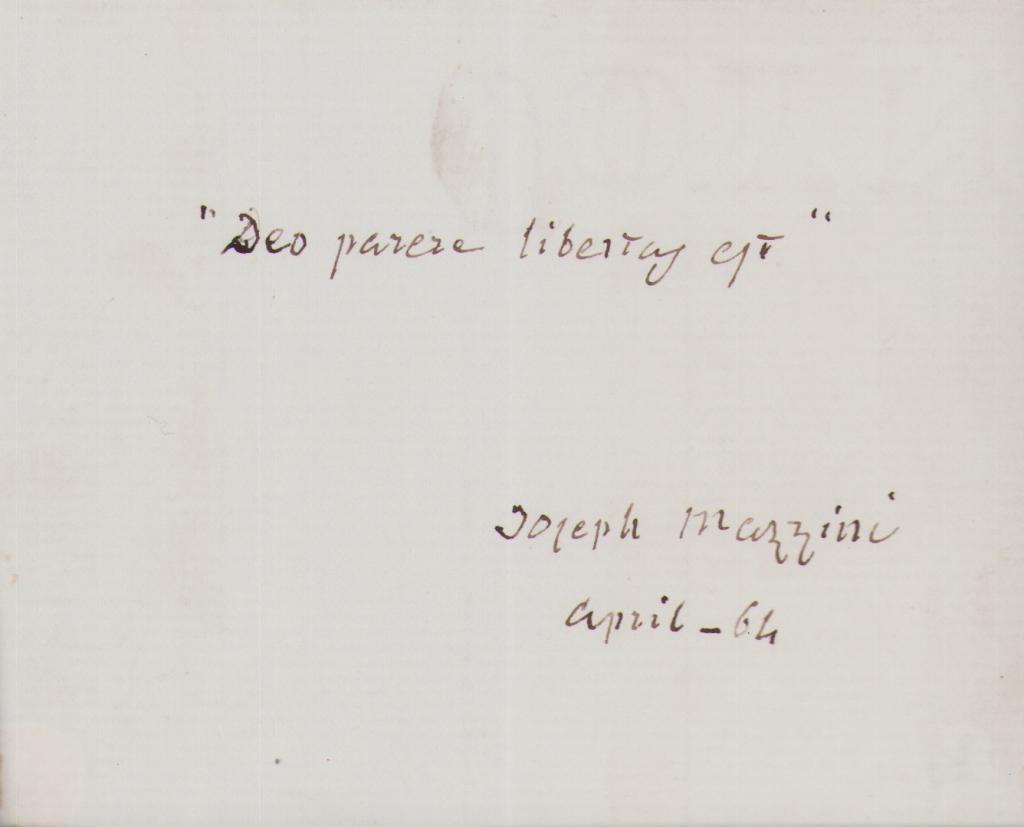 "Deo parere libertas est"
Joseph Mazzini
April - 64